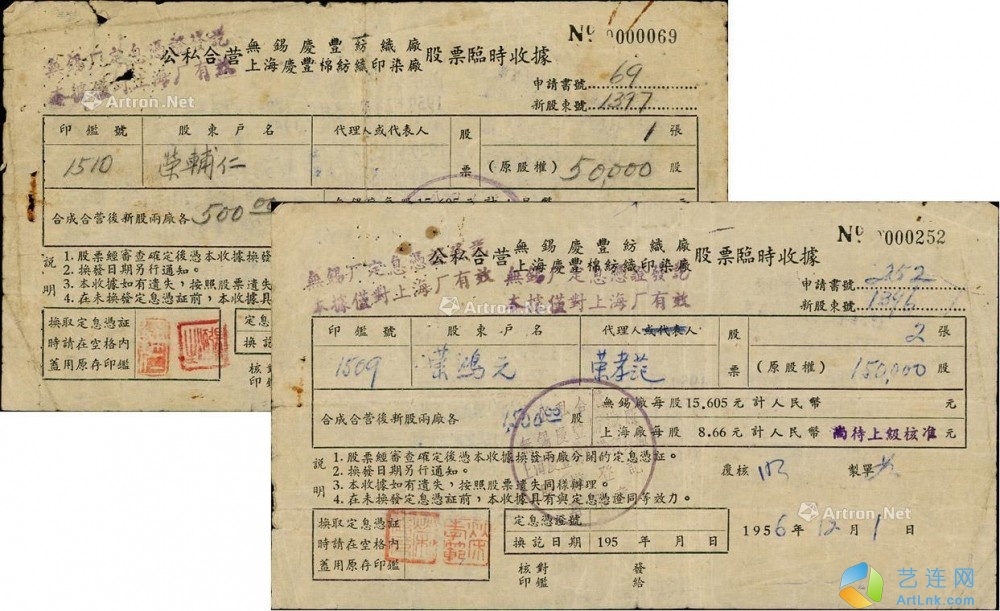 無錫厂定息憑證發訖
本據僅對上海厂有效
公私合营 無錫慶豐紡織廠
上海慶豐棉紡織印染廠 股票臨時收據
No 0000069
申請書號 69
新股東號 1397
印鑑號 股東戶名 代理人或代表人 股票 1 張
1510 榮輔仁 (原股權) 50,000 股
合成合營後新股兩廠各 500.00
說明
1.股票經審查確定後憑本收據換發
2.換發日期另行通知。
3.本收據如有遺失，按照股票遺失
4.在未換發定息憑證前，本收據具
換取定息憑証
時請在空格內
蓋用原存印鑑
定息
換訖
核對
印鑑
公私合营 無錫慶豐紡織廠
上海慶豐棉紡織印染廠 股票臨時收據
No 0000252
無錫厂定息憑證發訖
本據僅對上海厂有效
無錫厂定息憑證發訖
本據僅對上海厂有效
申請書號 252
新股東號 1396
印鑑號 股東戶名 代理人或代表人 股票 2 張
1509 榮鴻元 榮孝范 (原股權) 150,000 股
合成合營後新股兩廠各 1,500.00 股
無錫廠每股 15.605 元 計人民幣 元
上海廠每股 8.66 元 計人民幣 尚待上級核准 元
說明
1.股票經審查確定後憑本收據換發兩廠分開的定息憑証。
2.換發日期另行通知。
3.本收據如有遺失，按照股票遺失同樣辦理。
4.在未換發定息憑証前，本收據具有與定息憑證同等效力。
覆核 製單
換取定息憑証
時請在空格內
蓋用原存印鑑
定息憑證號
換訖日期 195 年 月 日
1956年12月1日
核對
印鑑
發給
Artron.Net
Artron.Net
Artron.Net
Artron.Net
艺连网
ArtLnk.com